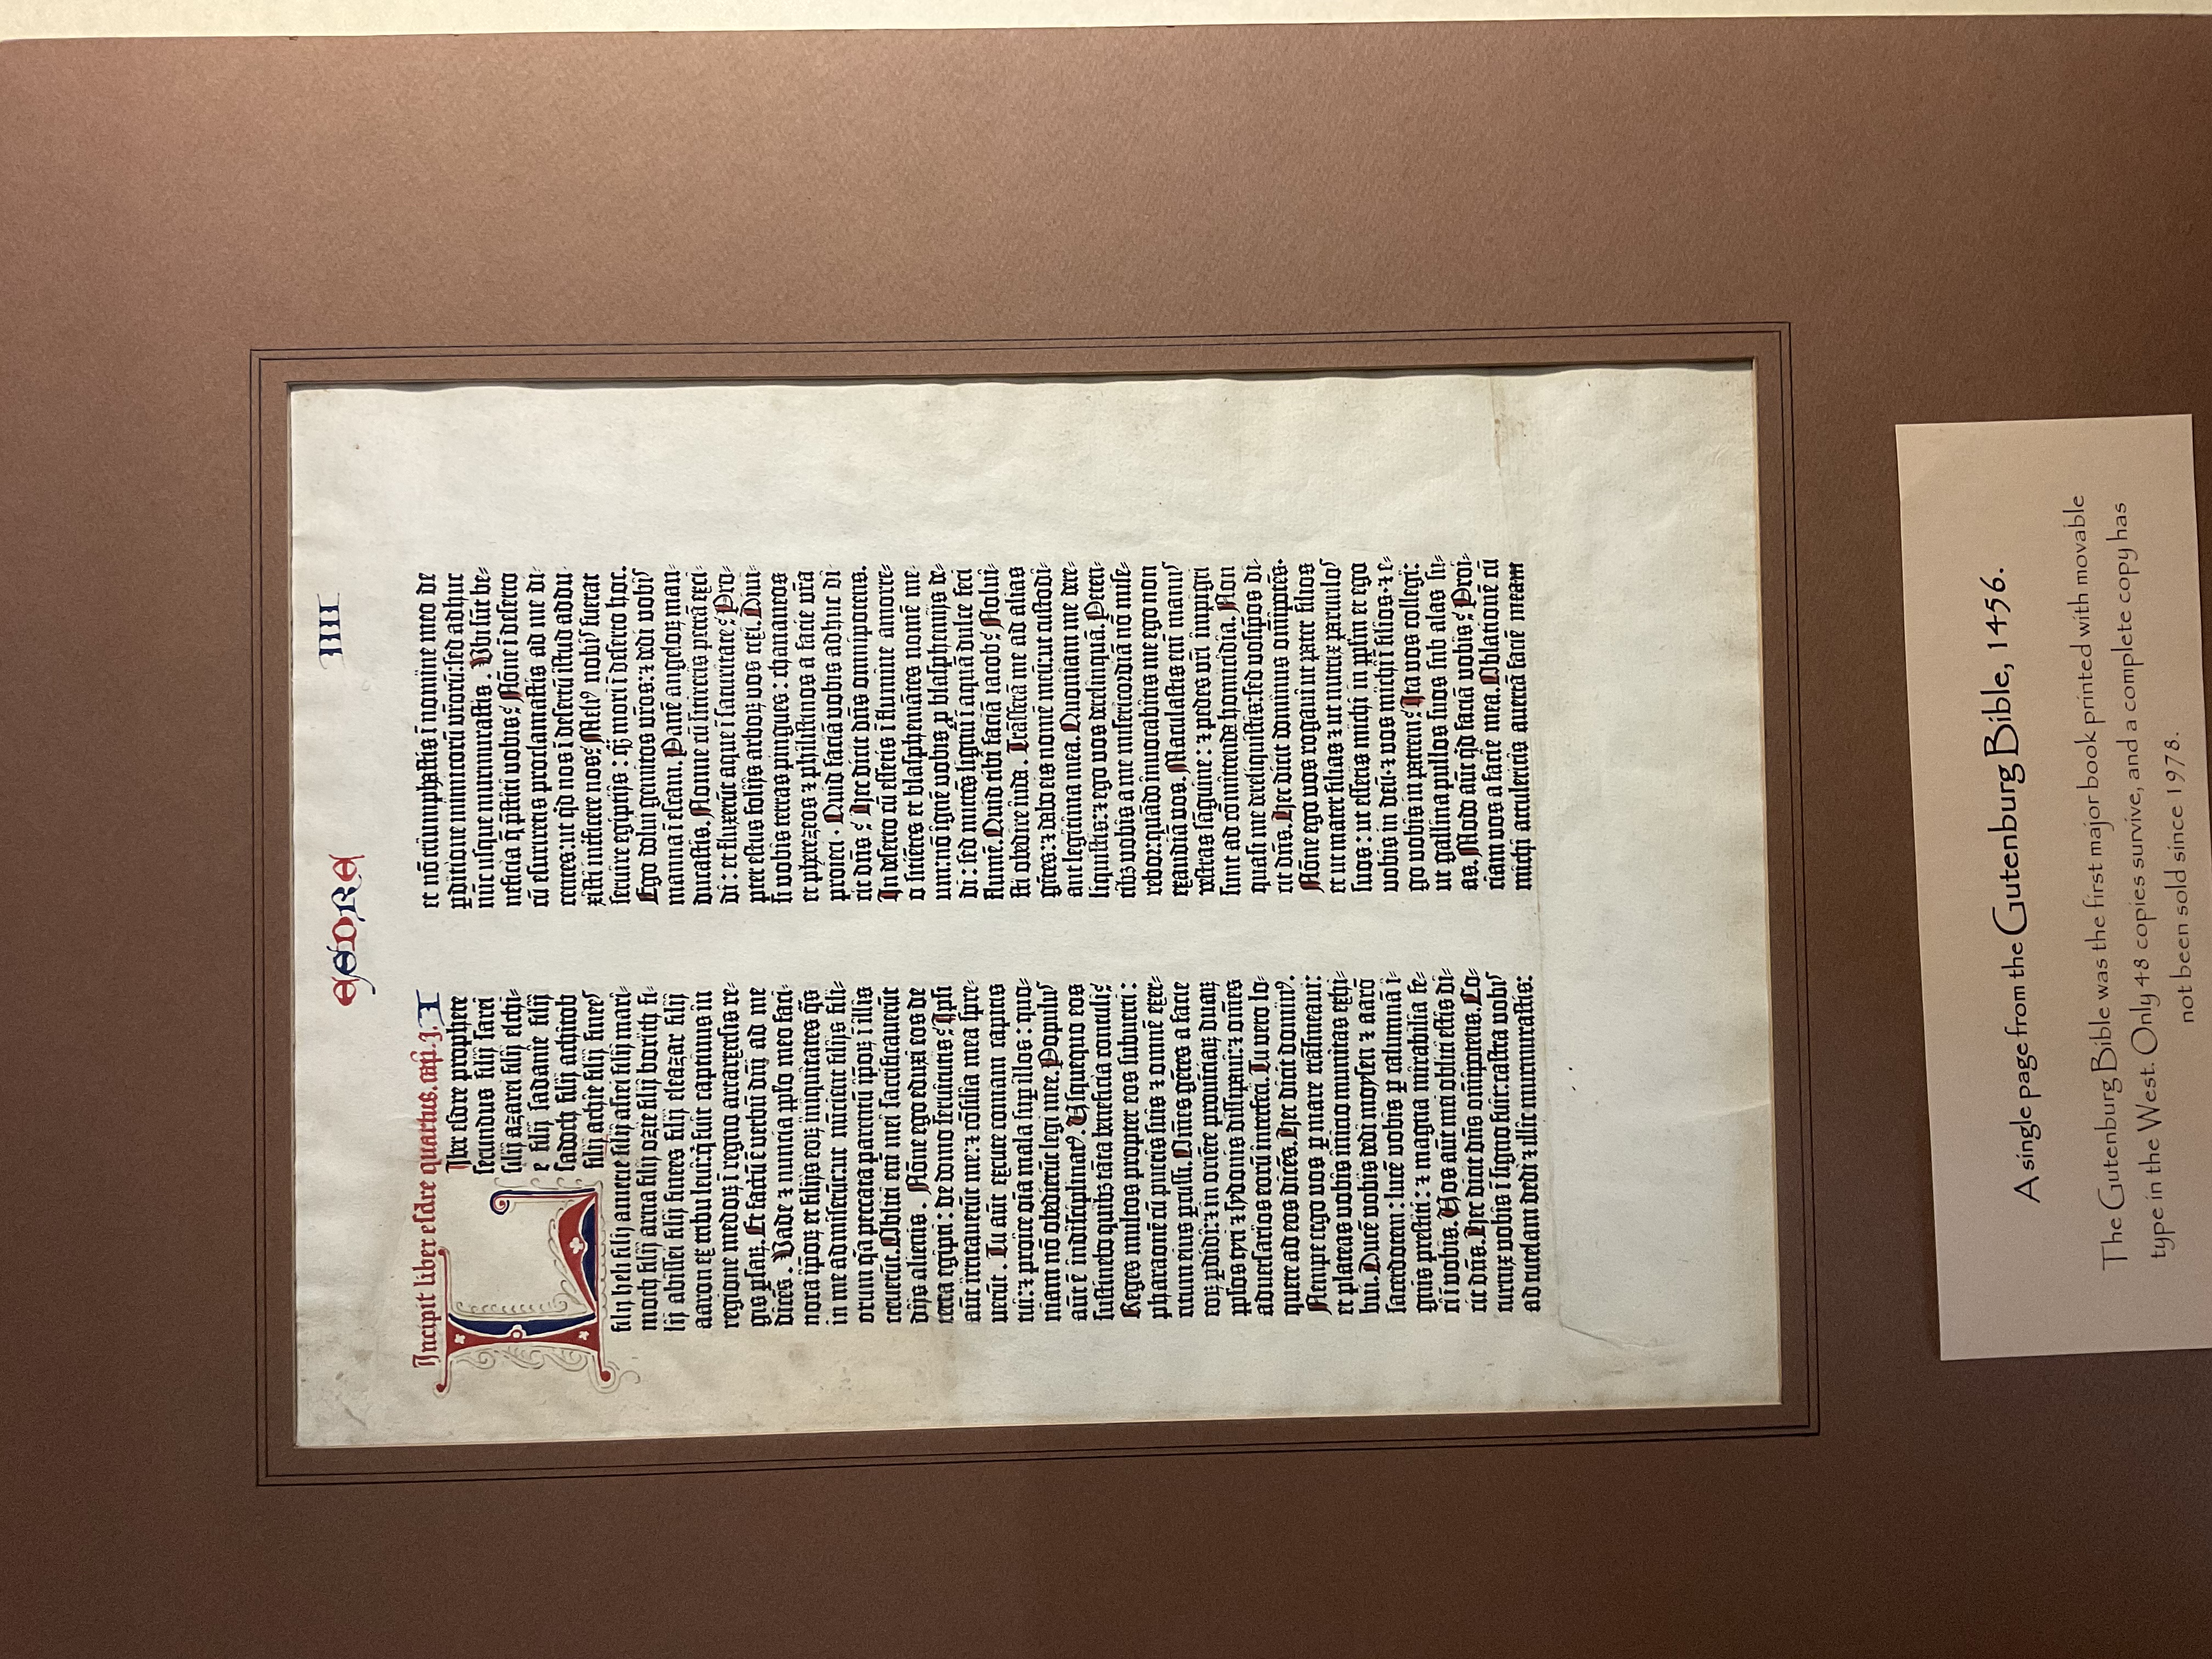 ESDRA IIII
Incipit liber esdre quartus. capi. j. I
Liber esdre prophete
secundus filij sarei
filij azarei filij elchi-
e filij sadanie filij
sadoch filij achitob
filij achie filij finees
filij heli filij amerie filij asiei filij mari-
moth filij arna filij ozie filij borith fi-
lij abissei filij finees filij eleazar filij
aaron ex tribu leui: qͥ fuit captiuus in
regione medoꝝ i regno artaxerxis re-
gis ꝑsaꝝ. Et factū ē verbū dn̄i ad me
dicēs. Vade ⁊ nuncia ip̄lo meo faci-
nora ip̄oꝝ et filijs eoꝝ iniquitates q̄s
in me admiserūt: ut nūcient filijs fili-
orum qꝛ̄ peccata parentū ip̄oꝝ ī illis
creuerūt. Obliti em̄ mei sacrificauerūt
dijs alienis. Nōne ego eduxi eos de
terra egipti: de domo seruitutis? Ipsi
aūt irritauerūt me: ⁊ cōsilia mea spre-
uerūt. Tu aūt excute comam capitis
tui: ⁊ proice oīa mala sup illos: quo-
niam nō obedierūt legi mee. Populus
aūt ē indisciplinatꝰ. Usquequo eos
sustinebo quibꝫ tāta beneficia contuli?
Reges multos propter eos subuerti:
pharaonē cū pueris suis ⁊ omnē exer-
citum eius ꝑcussi. Omēs gētes a facie
eoꝝ ꝑdidi: ⁊ in oriēte prouinciaꝝ duaꝝ
ipl̄os tyri ⁊ sydonis dissipaui: ⁊ om̄es
aduersarios eorū interfeci. Tu vero lo-
quere ad eos dicēs. Hec dicit dominꝰ.
Nempe ego vos ꝑ mare trāsmeaui:
et plateas vobis ī initio munitas exhi-
bui. Ducē vobis dedi moysen ⁊ aarō
sacerdotem: lucē vobis ꝑ columnā i-
gnis prestiti: ⁊ magna mirabilia fe-
ci ī vobis. Vos aūt mei obliti estis di-
cit dn̄s. Hec dicit dn̄s om̄ipotens. Co-
turnix vobis ī signo fuit: castra vobis
ad tutelam dedi ⁊ illic murmurastis:
et nō triumphastis ī nomine meo de
ꝑditione inimicorū vr̄orū: sed adhuc
nūc usque murmurastis. Ubi sūt be-
neficia q̄ p̄stiti vobis? Nōne ī deserto
cū esuriretis proclamastis ad me di-
centes: ut qͥd nos ī desertū istud addu-
xisti interficere nos? Meliꝰ nobis fuerat
seruire egiptijs: qͣm mori ī deserto hoc.
Ego dolui gemitus vr̄os: ⁊ dedi vobis
manna ī escam. Panē angeloꝝ man-
ducastis. Nonne cū sitiretis petrā exci-
di: et fluxerūt aque ī saturitate? Pro-
pter estus folijs arboꝝ vos texi. Diui-
si vobis terras pingues: chananeos
et pherezeos ⁊ philistinos a facie vr̄a
proieci. Quid faciā vobis adhuc di-
cit dn̄s? Hec dicit dn̄s omnipotens.
In deserto cū essetis ī flumine amorre-
o sitiētes et blasphemātes nomē me-
um: nō ignē vobis ꝓ blasphemijs de-
di: sed mittēs lignū ī aquā dulce feci
flumē. Quid tibi faciā iacob? Nolui-
sti obedire iuda. Trāsferā me ad alias
gētes: ⁊ dabo eis nomē meū: ut custodi-
ant legitima mea. Quoniam me dere-
liquistis: ⁊ ego vos derelinquā. Peten-
tibꝫ vobis a me misericordiā nō mise-
rebor: quādo inuocabitis me ego non
exaudiā vos. Maculastis em̄ manus
vestras sāguine: ⁊ pedes vr̄i impigri
sunt ad cōmittenda homicidia. Non
quasi me dereliquistis: sed vosip̄os di-
cit dn̄s. Hec dicit dominus om̄ipotēs.
Nōne ego vos rogaui ut pater filios
et ut mater filias ⁊ ut nutrix paruulos
suos: ut essetis michi in pl̄m et ego
vobis in deū: ⁊ vos michi ī filios: ⁊ e-
go vobis in patrem? Ita vos collegi:
ut gallina pullos suos sub alas su-
as. Modo aūt qͥd faciā vobis? Proi-
ciam vos a facie mea. Oblationē cū
michi attuleritis auertā faciē meam
A single page from the Gutenburg Bible, 1456.
The Gutenburg Bible was the first major book printed with movable
type in the West. Only 48 copies survive, and a complete copy has
not been sold since 1978.